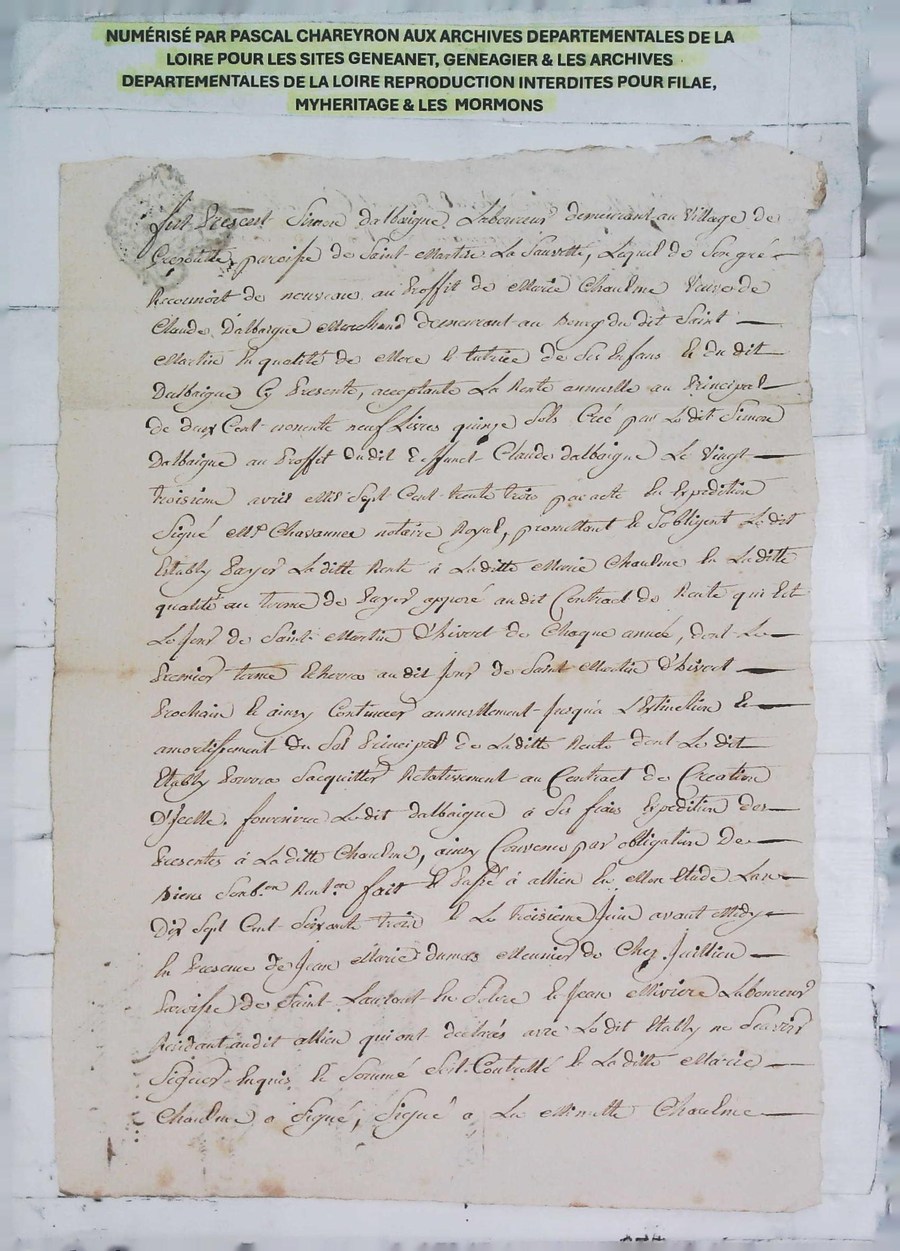 NUMÉRISÉ PAR PASCAL CHAREYRON AUX ARCHIVES DEPARTEMENTALES DE LA
LOIRE POUR LES SITES GENEANET, GENEAGIER & LES ARCHIVES
DEPARTEMENTALES DE LA LOIRE REPRODUCTION INTERDITES POUR FILAE,
MYHERITAGE & LES MORMONS
fut Present Simon dalbaigue Laboureur demeurant au Village de
paroisse de Saint Martin La Sauvetté, Lequel de Son gré
Reconnoit de nouveau au Proffit de Marie Chaulme Veuve de
Claude Dalbaigue Marchand demeurant au Bourg du dit Saint
Martin En qualité de Mere & tutrice de Ses Enfans & du dit
Dalbaigue Cy Presente, acceptante La Rente annuelle au Principal
de deux Cent nonente neuf Livres quinze Sols Créé par Le dit Simon
Dalbaigue au Proffit dudit Deffunct Claude dalbaigue Le Vingt
troisieme avril Mil Sept Cent trente trois par acte En Expedition
Signé Me Chavannes notaire Royal, promettant & Sobligent Ledit
Estably Payer La ditte Rente à Laditte Marie Chaulme En Laditte
qualité au terme de Payer apposé audit Contract de Rente qui Est
Le Jour de Saint Martin D'hivert de Chaque année, dont Le
Premier terme Echerra audit Jour de Saint Martin D'hivert
Prochain & ainsy Continuer annuellement Jusqua L'Extinction &
amortissement du Sol Principal de Laditte Rente dont Le dit
Etably Pourra Sacquitter Relativement au Contract de Creation
D'Jcelle. fournira Ledit dalbaigue à Ses frais Expedition des
Presentes à La ditte Chaulme, ainsy Convenu par obligation De
Biens Soub.on Renl.on fait & Passé à allieu En Mon Etude Lan
Dix Sept Cent Soixante trois & Le troisieme Juin avant Midy
En Presence de Jean Marie dumas Meunier de Chez Juillien
Paroisse de Saint Laurent En Solore & Jean Riviere Laboureur
Residant audit allieu qui ont declarés avec Le dit Etably ne Scavoir
Signer Enquis & Sommé Soit Controllé & La ditte Marie
Chaulme a Signé, Signé a La Minutte Chaulme